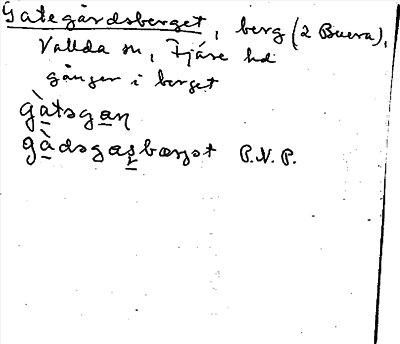 Gategårdsberget, berg (2 Buera),
Vallda sn, Fjäre hd
gånger i berget
gàtsgan
gàdsgasbærjət P.N.P.